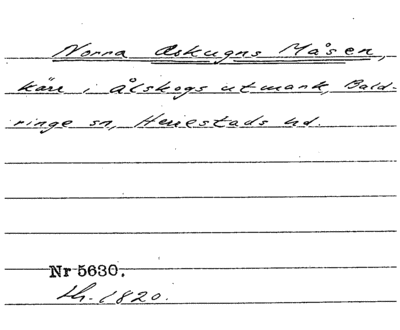 Norra Askugns Måsen,
kärr i Ålskogs utmark, Bald-
ringe sn, Herrestads hd.
Nr 5630.
1820.